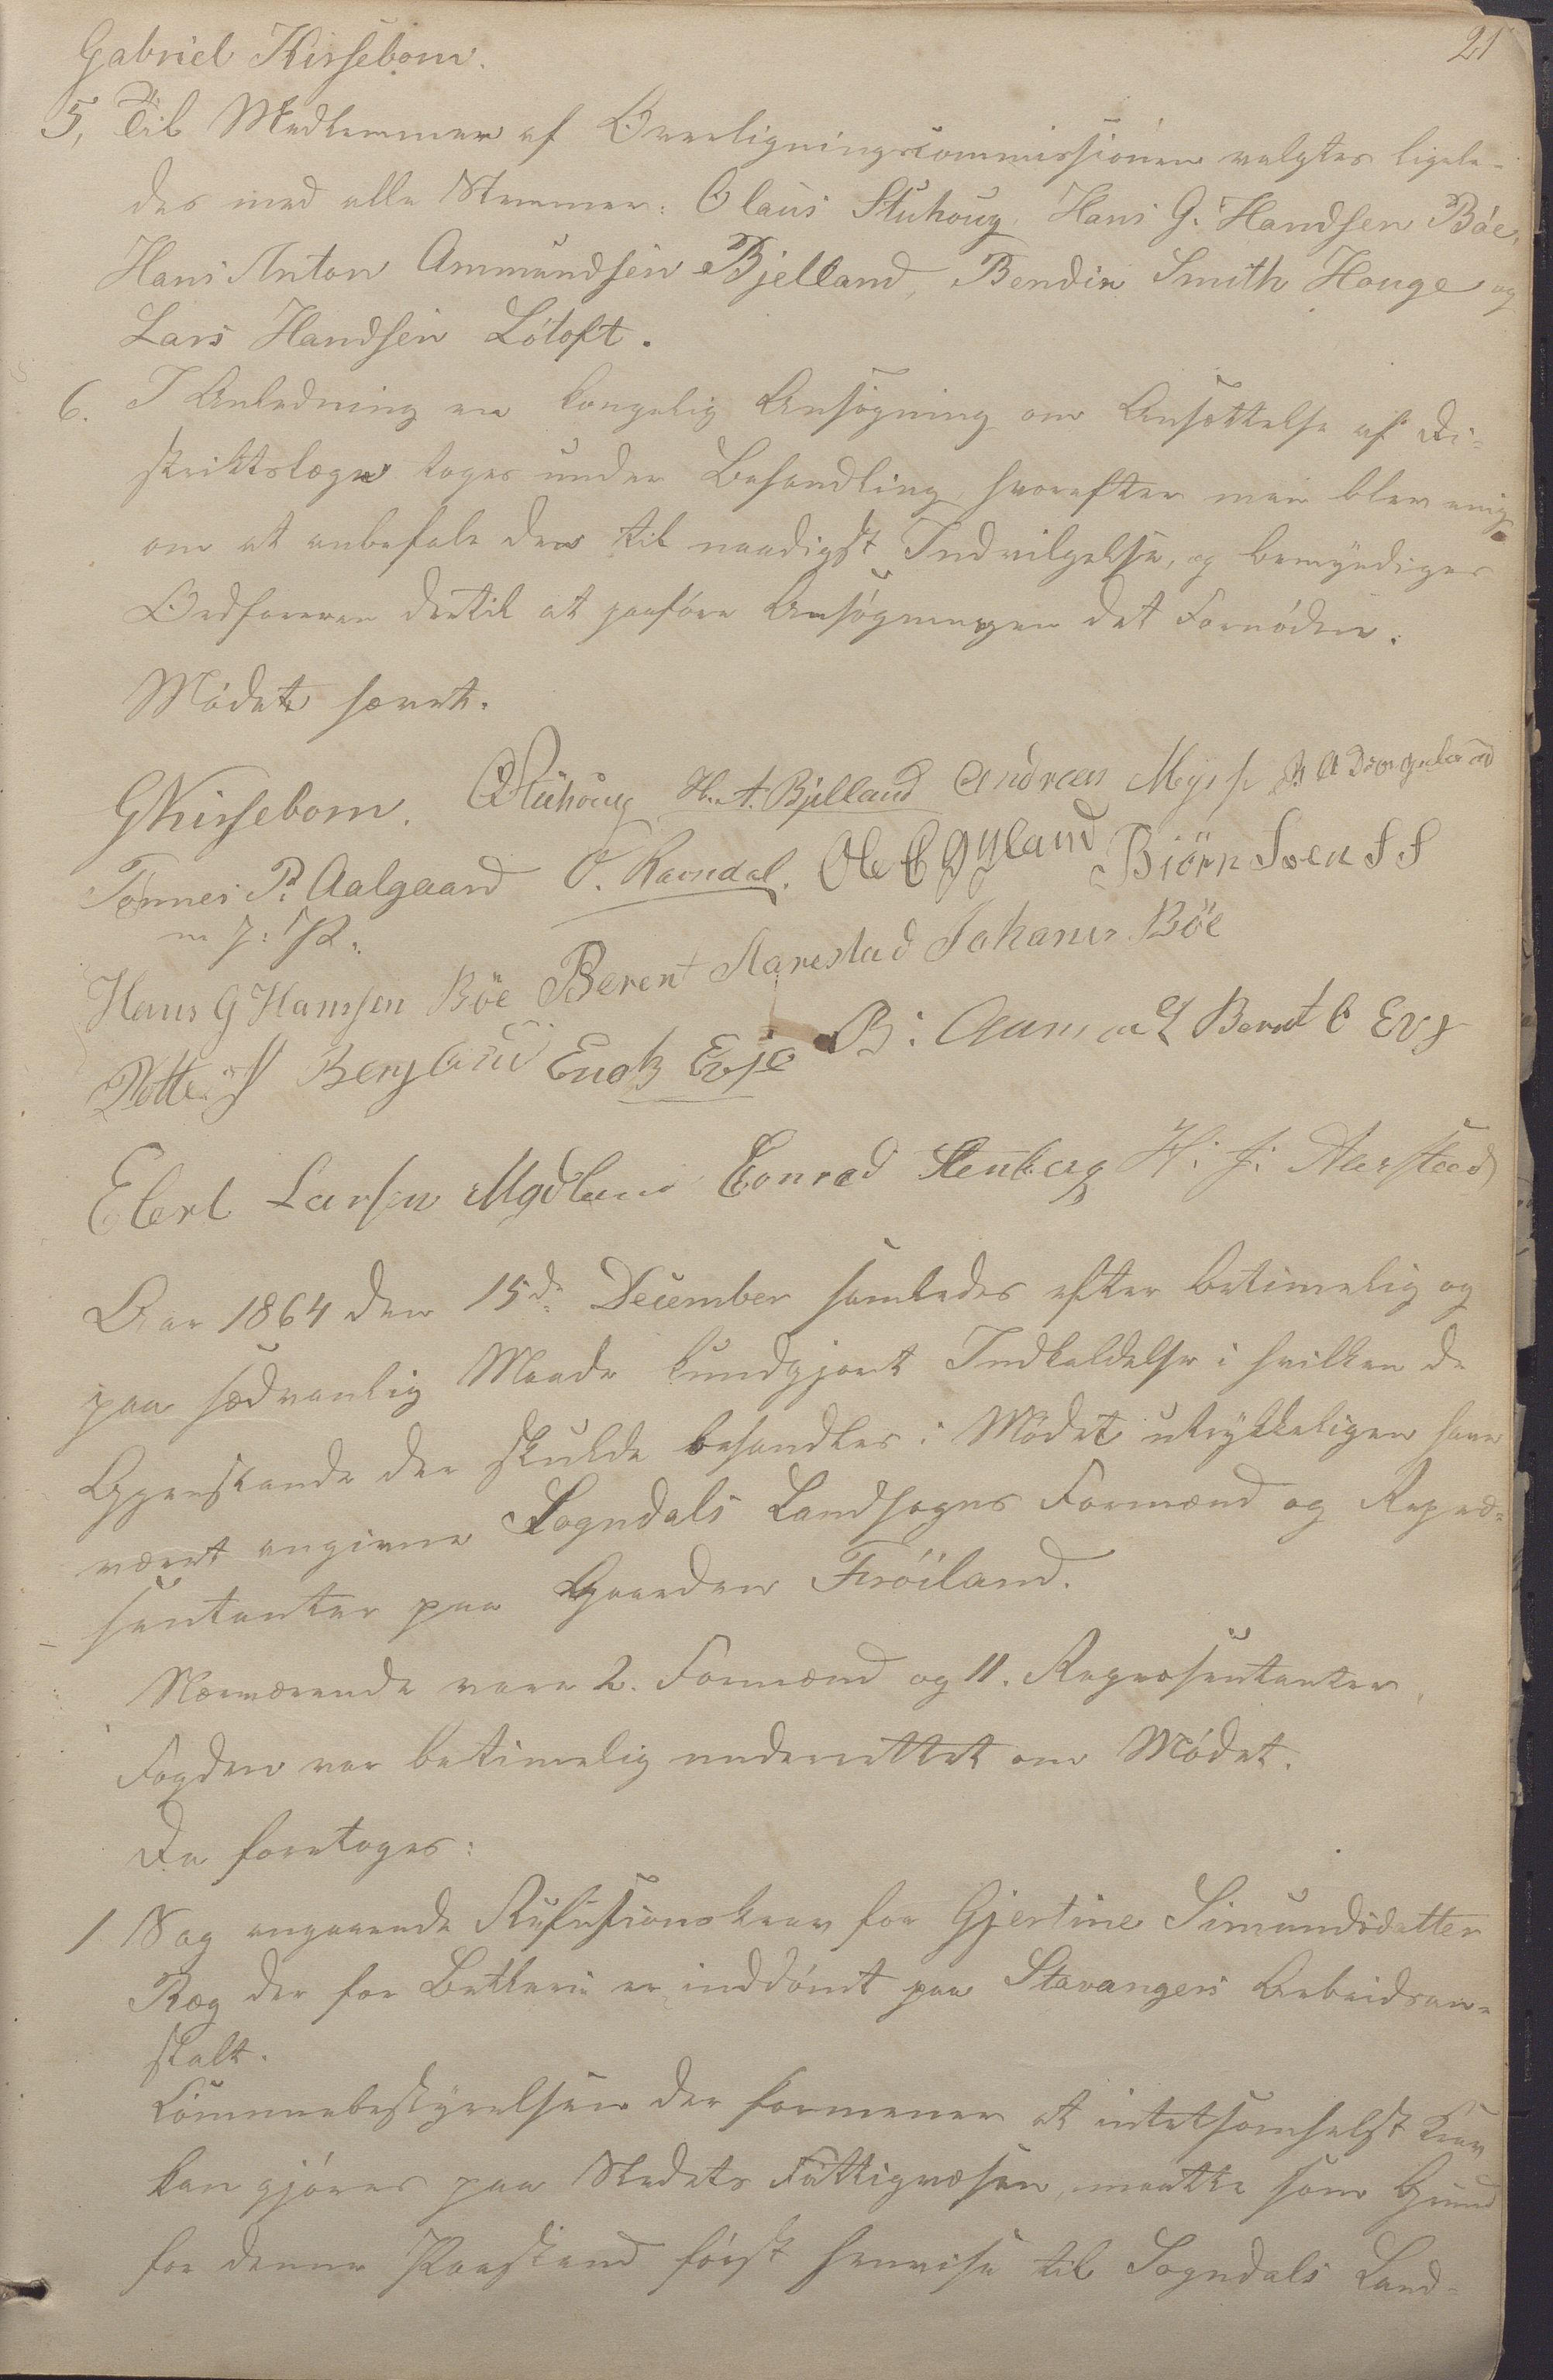 21
Gabriel Kirsebom.
5, Til Medlemmer af Overligningscommissionen valgtes ligele-
des med alle Stemmer: Olaus Stuhoug, Hans G. Handsen Böe,
Hans Anton Ammundsen Bjelland, Bendix Smith Houge og
Lars Handsen Lötoft.
6. I Anledning en kongelig Ansøgning om Ansættelse af Di-
striktslæge toges under Behandling, hvorefter man blev enig
om at anbefale den til naadigst Indvilgelse, og bemyndiges
Ordføreren dertil at paaføre Ansøgningen det Fornødne.
Mödet hævet.
GKirsebom. OStuhoug H. A. Bjelland Andreas
Tønnes P. Aalgaard O. Ravndal. Ole Egyland Biörn
m. f: P.
Hans G Hansen Böe Berent Aarestad Johanes Böe
Berglaud Enok Evje B: Berent
Elert Larsen Mydland Conrad Stenberg H: J: Aarstad
Aar 1864 den 15de December samledes efter betimelig og
paa sædvanlig Maade kundgjort Indkaldelse i hvilken de
Gjenstande der skulde behandles i Mödet utrykkeligen have
været angivne Sogndals Landsogns Formænd og Repræ-
sentanter paa Gaarden Fröiland.
Nærværende vare 2. Formænd og 11. Repræsentanter.
Fogden var betimelig underrettet om Mödet.
Da foretoges:
1 Sag angaaende Refusionskrav for Gjertine Simundsdatter
Ræg der for Betleri er inddömt paa Stavangers Arbeidsan-
stalt.
Communebestyrelsen der formener at intetsomhelst Krav
kan gjöres paa Stedets Fattigvæsen, maatte som Grund
for denne Paastand først henvise til Sogndals Land-